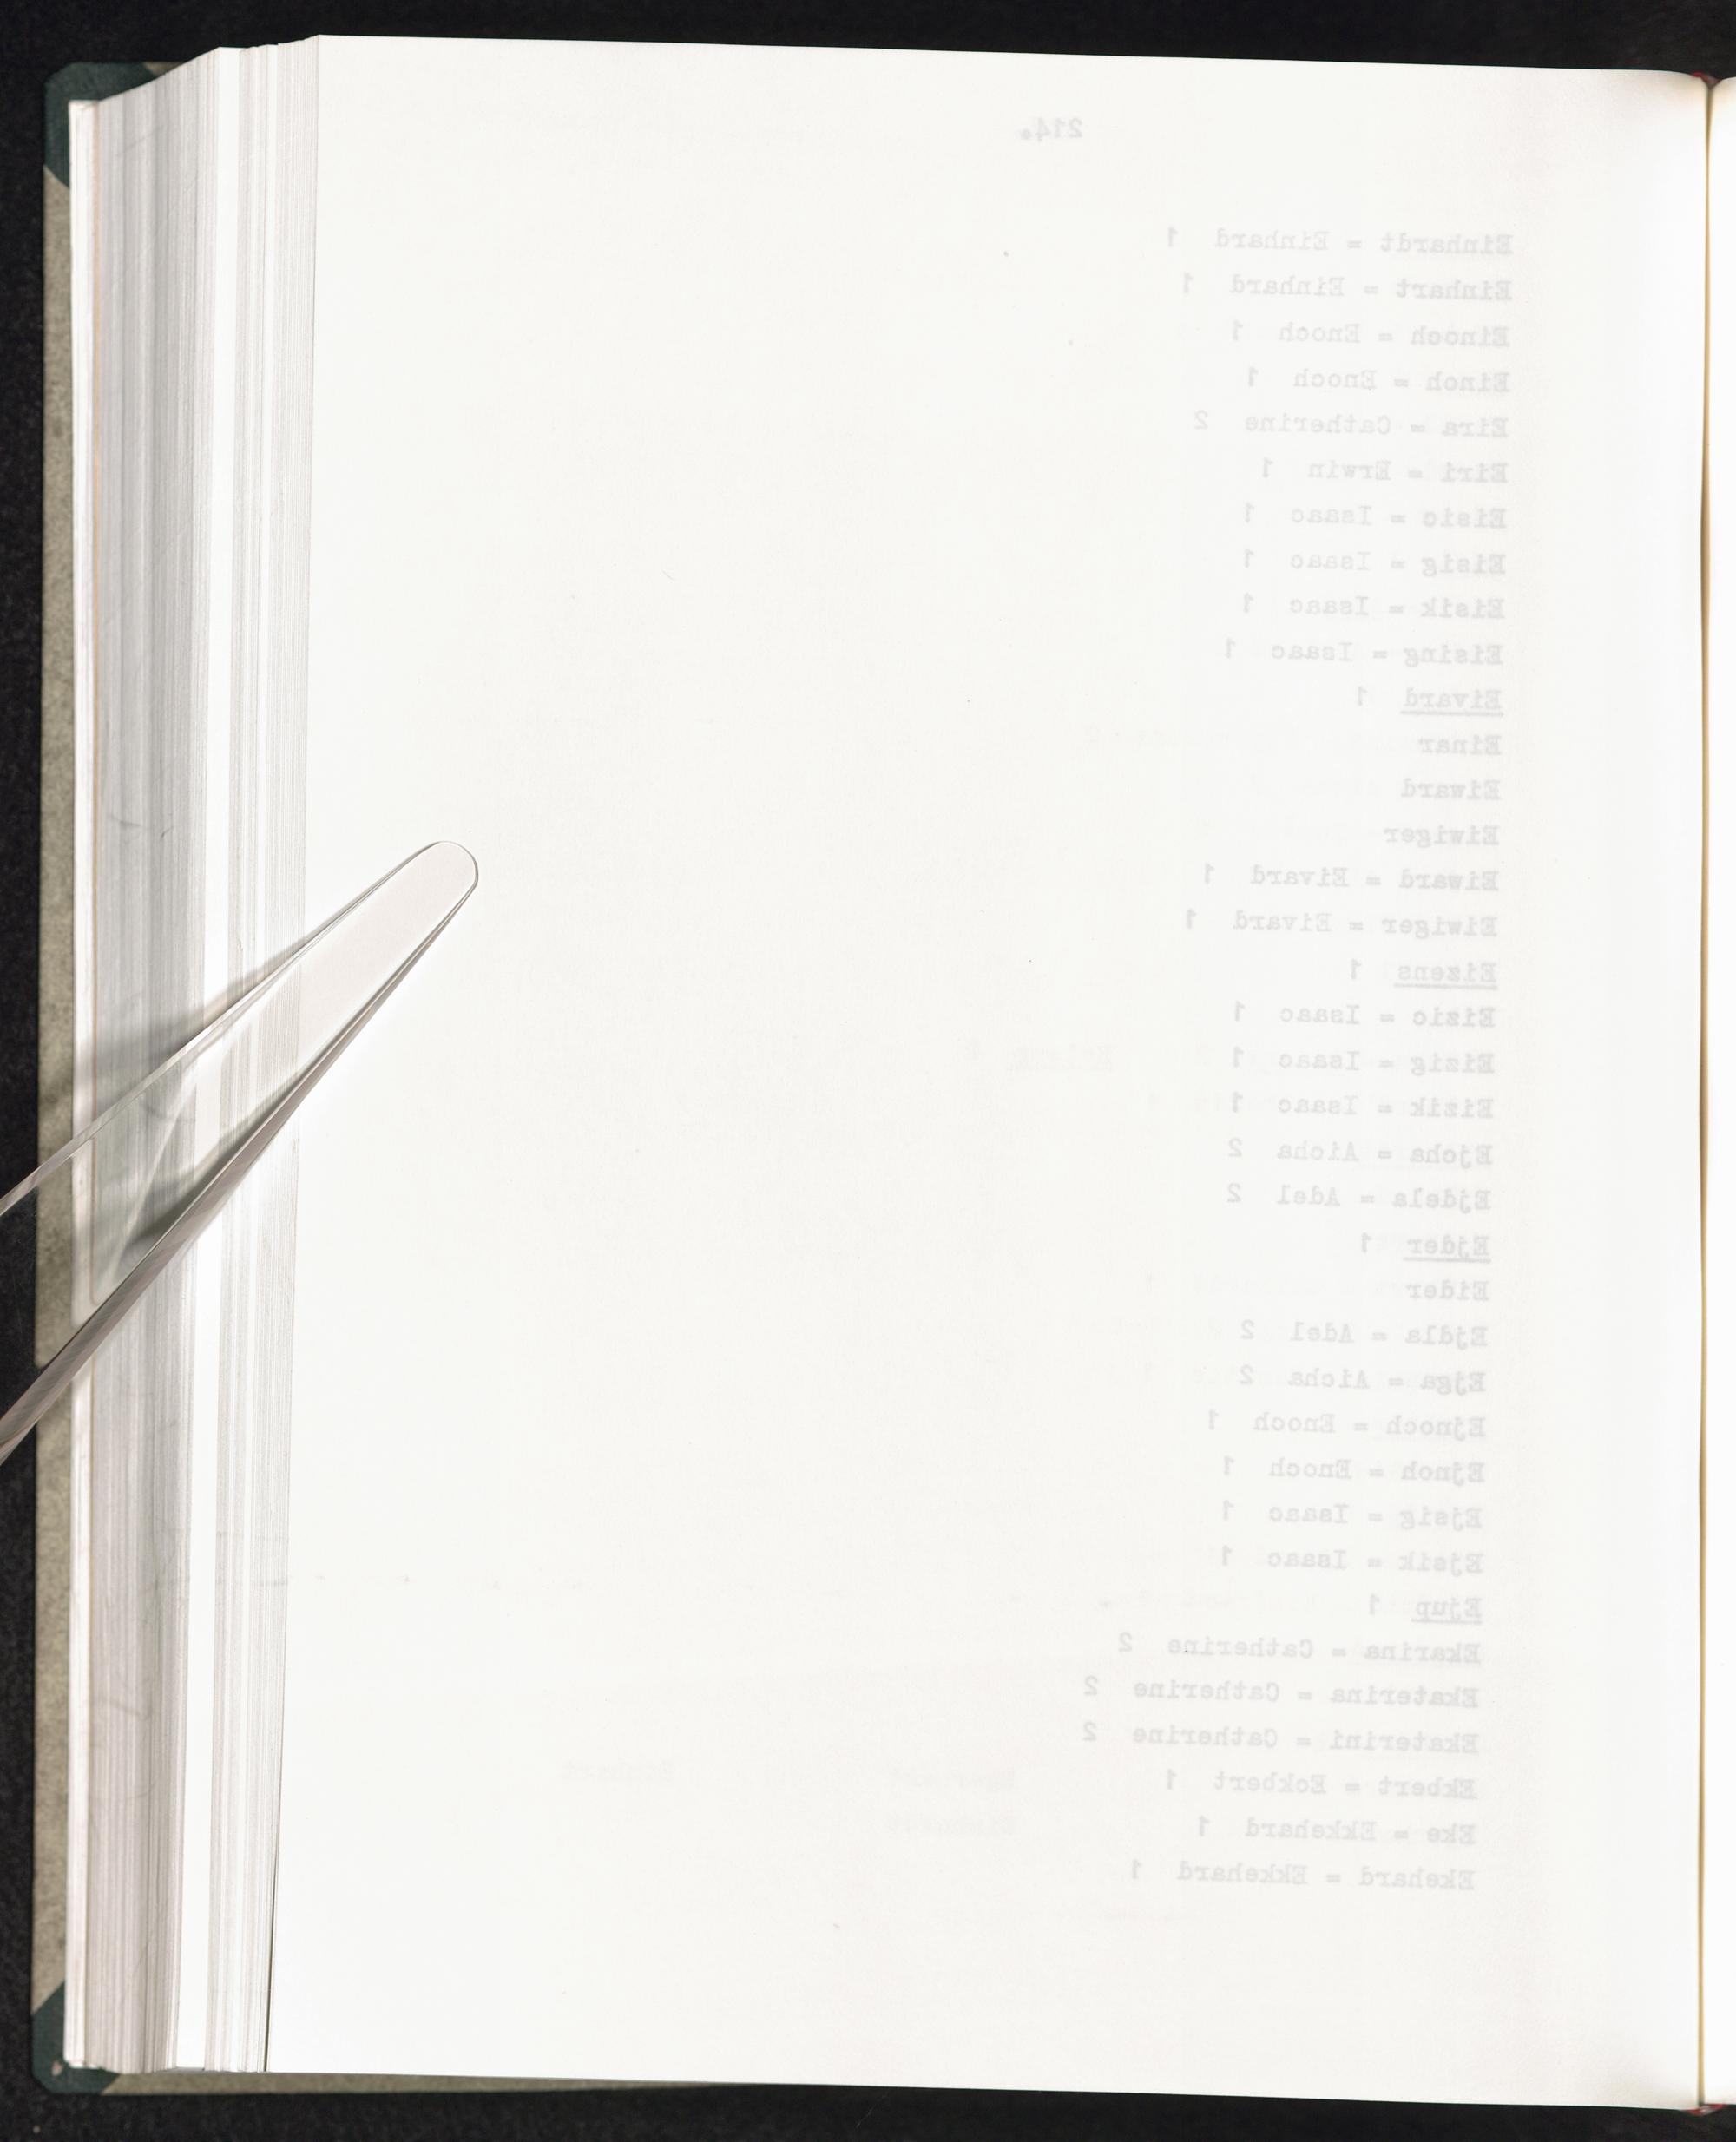 214.
Einhardt = Einhard 1
Einhart = Einhard 1
Einoch = Enoch 1
Einoh = Enoch 1
Eira = Catherine 2
Eiri = Erwin 1
Eisic = Isaac 1
Eisig = Isaac 1
Eisik = Isaac 1
Eising = Isaac 1
Eivard 1
Einar
Eiward
Eiwiger
Eiward = Eivard 1
Eiwiger = Eivard 1
Eizens 1
Eizic = Isaac 1
Eizig = Isaac 1
Eizik = Isaac 1
Ejcha = Aicha 2
Ejdela = Adel 2
Ejder 1
Eider
Ejdla = Adel 2
Ejga = Aicha 2
Ejnoch = Enoch 1
Ejnoh = Enoch 1
Ejsig = Isaac 1
Ejsik = Isaac 1
Ejup 1
Ekarina = Catherine 2
Ekaterina = Catherine 2
Ekaterini = Catherine 2
Ekbert = Eckbert 1
Eke = Ekkehard 1
Ekehard = Ekkehard 1